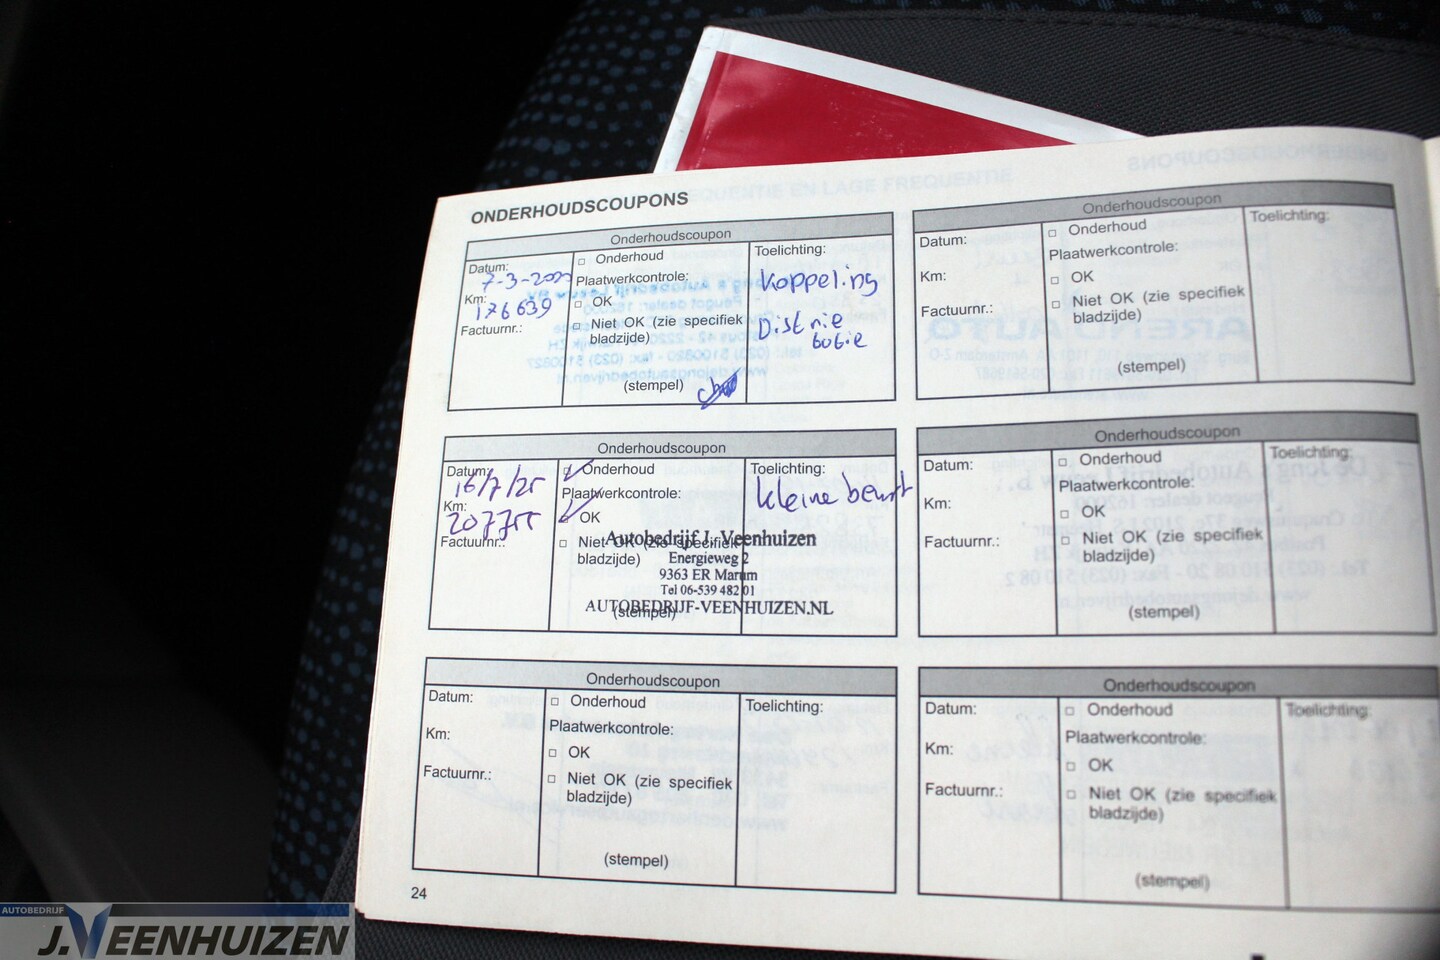 ONDERHOUDSCOUPONS
Onderhoudscoupon
Datum:
7-3-20
Km:
176639
Factuurnr.:
□ Onderhoud
Plaatwerkcontrole:
□ OK
□ Niet OK (zie specifiek
bladzijde)
(stempel)
Toelichting:
Koppeling
Distrie
butie
Onderhoudscoupon
Datum:
Km:
Factuurnr.:
□ Onderhoud
Plaatwerkcontrole:
□ OK
□ Niet OK (zie specifiek
bladzijde)
(stempel)
Toelichting:
Onderhoudscoupon
Datum:
16/7/25
Km:
207755
Factuurnr.:
□ Onderhoud
Plaatwerkcontrole:
□ OK
□ Niet OK (zie specifiek
bladzijde)
Autobedrijf J. Veenhuizen
Energieweg 2
9363 ER Marum
Tel 06-539 482 01
AUTOBEDRIJF-VEENHUIZEN.NL
(stempel)
Toelichting:
kleine beurt
Onderhoudscoupon
Datum:
Km:
Factuurnr.:
□ Onderhoud
Plaatwerkcontrole:
□ OK
□ Niet OK (zie specifiek
bladzijde)
(stempel)
Toelichting:
Onderhoudscoupon
Datum:
Km:
Factuurnr.:
□ Onderhoud
Plaatwerkcontrole:
□ OK
□ Niet OK (zie specifiek
bladzijde)
(stempel)
Toelichting:
Onderhoudscoupon
Datum:
Km:
Factuurnr.:
□ Onderhoud
Plaatwerkcontrole:
□ OK
□ Niet OK (zie specifiek
bladzijde)
(stempel)
Toelichting:
24
AUTOBEDRIJF
J.VEENHUIZEN